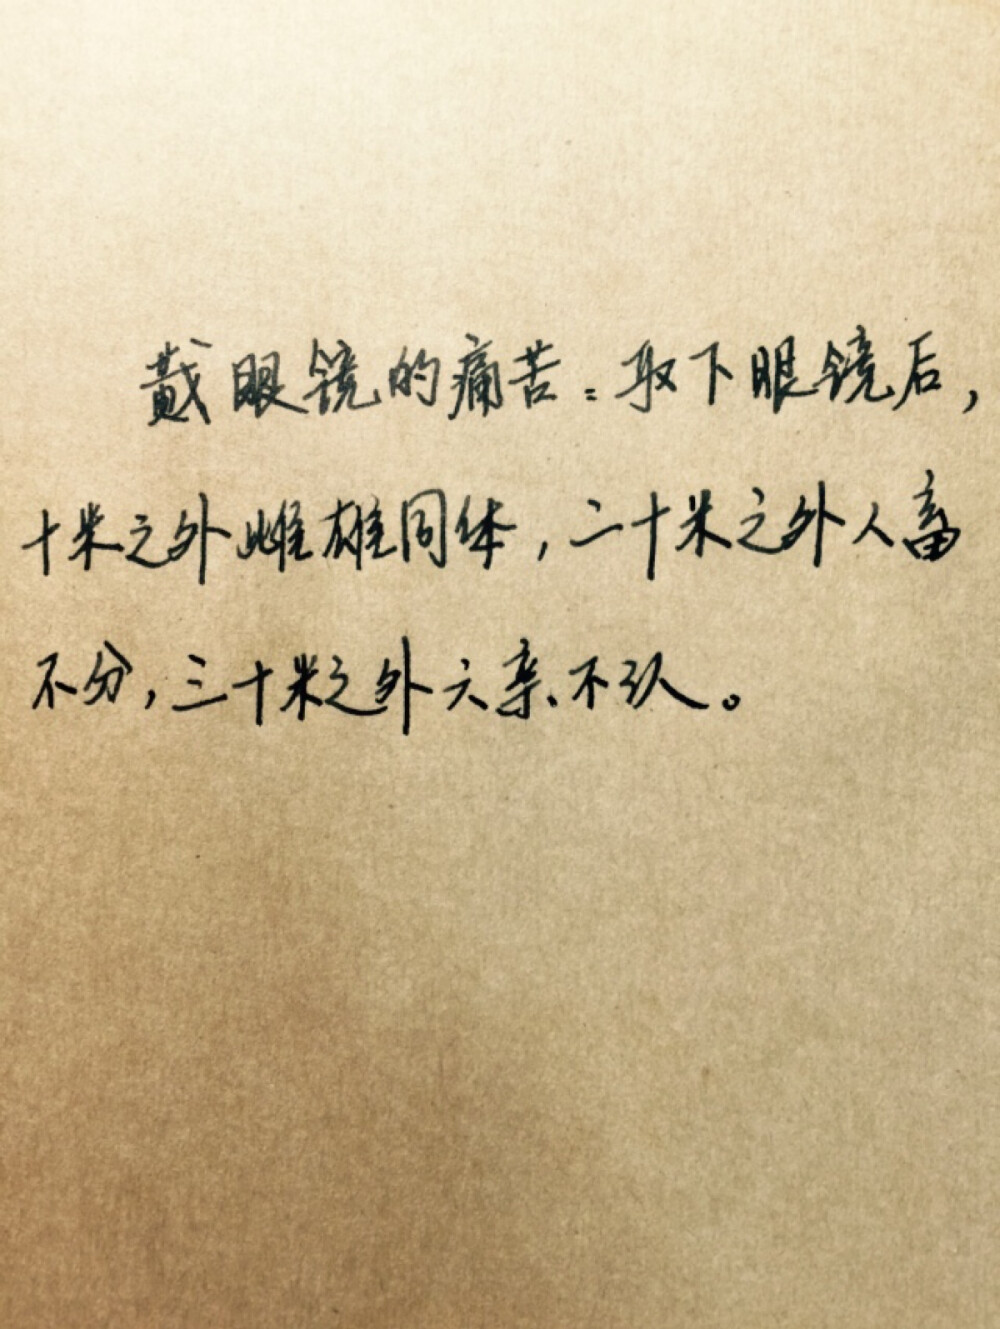 戴眼镜的痛苦：取下眼镜后，
十米之外雌雄同体，二十米之外人畜
不分，三十米之外六亲不认。